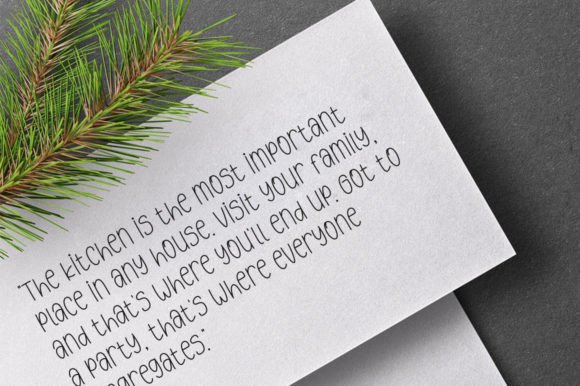 "The kitchen is the most important
place in any house. Visit your family,
and that's where you'll end up. Got to
a party, that's where everyone
ngregates."